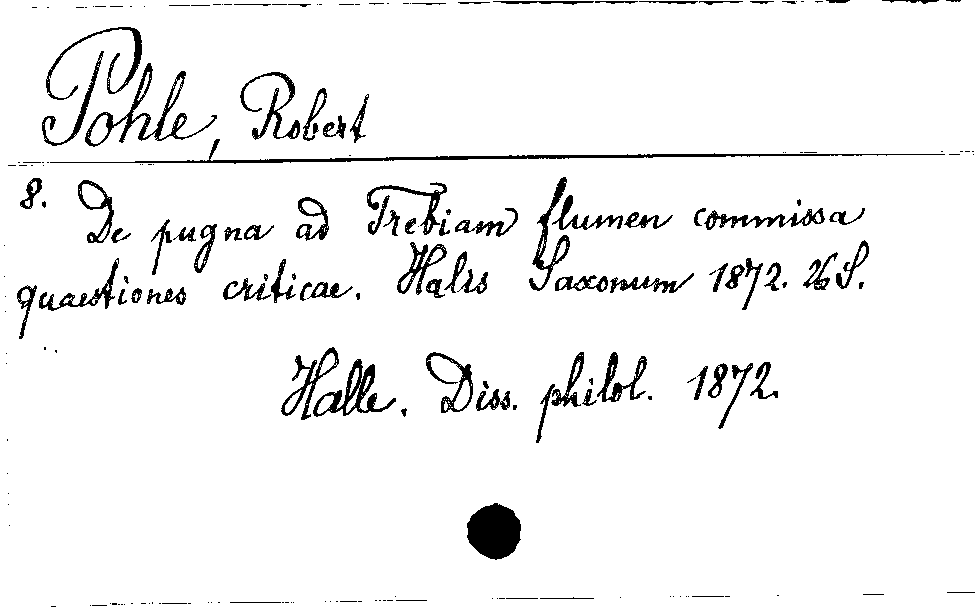 Pohle, Robert
8. De pugna ad Trebiam flumen commissa
quaestiones criticae. Halis Saxonum 1872. 26 S.
Halle. Diss. philol. 1872.